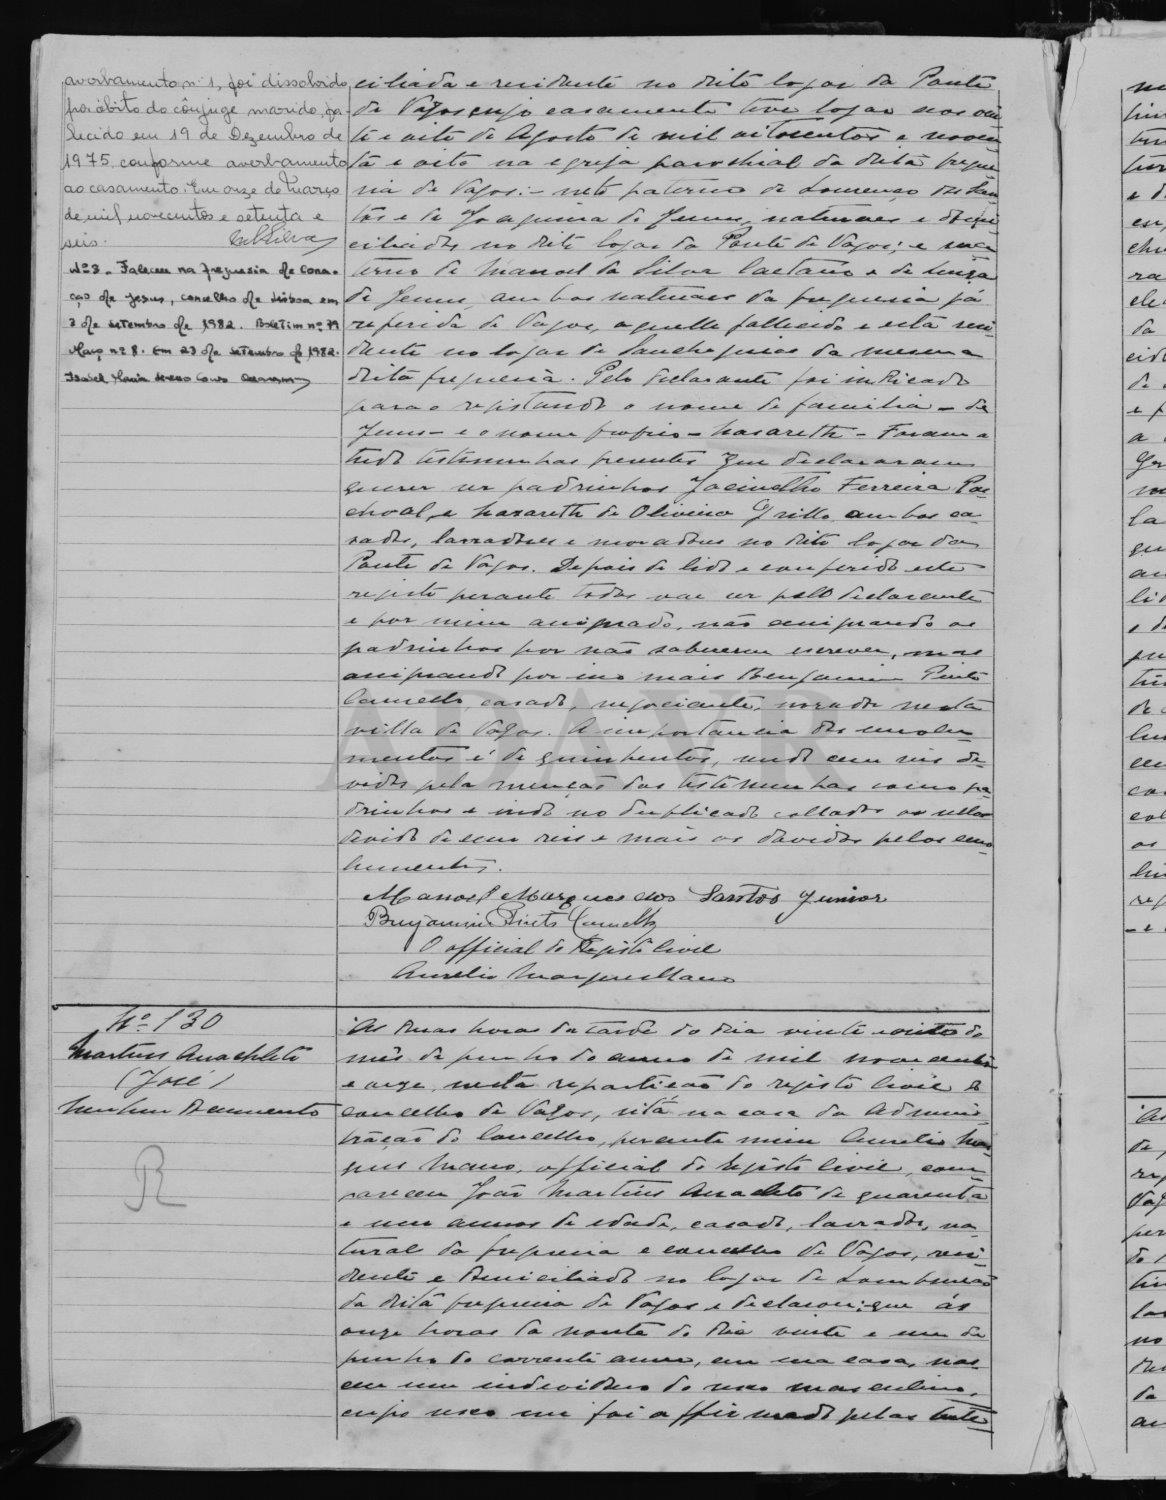 averbamento nº 1, foi dissolvido
por óbito do cônjuge marido, fa-
lecido em 19 de Dezembro de
1975, conforme averbamento
ao casamento. Em onze de Março
de mil novecentos e setenta e
seis.
Nº 3 - Faleceu na freguesia de Cora-
ção de Jesus, concelho de Lisboa em
3 de setembro de 1982. Boletim nº 79
Março nº 8. Em 23 de setembro de 1982.
ciliada e residente no dito logar da Ponte
de Vagos cujo casamento teve logar nos vin-
te e oito de Agosto de mil oitocentos e noven-
ta e oito na egreja parochial da dita fregue-
sia de Vagos; - neto paterno de Lourenço dos San-
tos e de Joaquina de Jesus, naturaes e domi-
ciliados no dito logar da Ponte de Vagos; e ma-
terno de Manoel da Silva Caetano e de Luiza
de Jesus, ambos naturaes da freguesia já
referida de Vagos, aquelle fallecido e esta resi-
dente no logar de Sanchequias da mesma
dita freguesia. Pelo declarante foi indicado
para o registando o nome de familia - de
Jesus - e o nome proprio - Nasareth - Foram a
tudo testemunhas presentes que declararam
querer ser padrinhos Jacintho Ferreira Pas-
choal, e Nazareth de Oliveira Grillo, ambos ca-
sados, lavradores e moradores no dito logar da
Ponte de Vagos. Depois de lido e conferido este
registo perante todos vae ser pelo declarante
e por mim assignado, não assignando os
padrinhos por não saberem escrever, mas
assignando por isso mais Benjamim Pinto
Camello, casado, negociante, morador nesta
villa de Vagos. A importancia dos emolu-
mentos é de quinhentos, sendo cem reis de-
vidos pela menção das testemunhas como pa-
drinhos e indo no duplicado collados os sellos
devido de cem reis e mais os devidos pelos emo-
lumentos.
Manoel Marques dos Santos Junior
Benjamim Pinto Camello
O official do Registo Civil
Aurelio Marques Mano
Nº 130
Martins Anacleto
(José)
Nenhum documento
R
Ás duas horas da tarde do dia vinte e oito do
mês de junho do anno de mil novecentos
e onze, nesta repartição do registo civil do
concelho de Vagos, sita na casa da Adminis-
tração do Concelho, perante mim Aurelio Mar-
ques Mano, official do registo civil, com-
pareceu João Martins Anacleto de quarenta
e um annos de edade, casado, lavrador, na-
tural da freguesia e concelho de Vagos, resi-
dente e domiciliado no logar de Lombomeão
da dita freguesia de Vagos e declarou: que ás
onze horas da noute do dia vinte e um de
junho do corrente anno, em sua casa, nas-
ceu um individuo do sexo masculino,
cujo sexo me foi affirmado pelas teste-